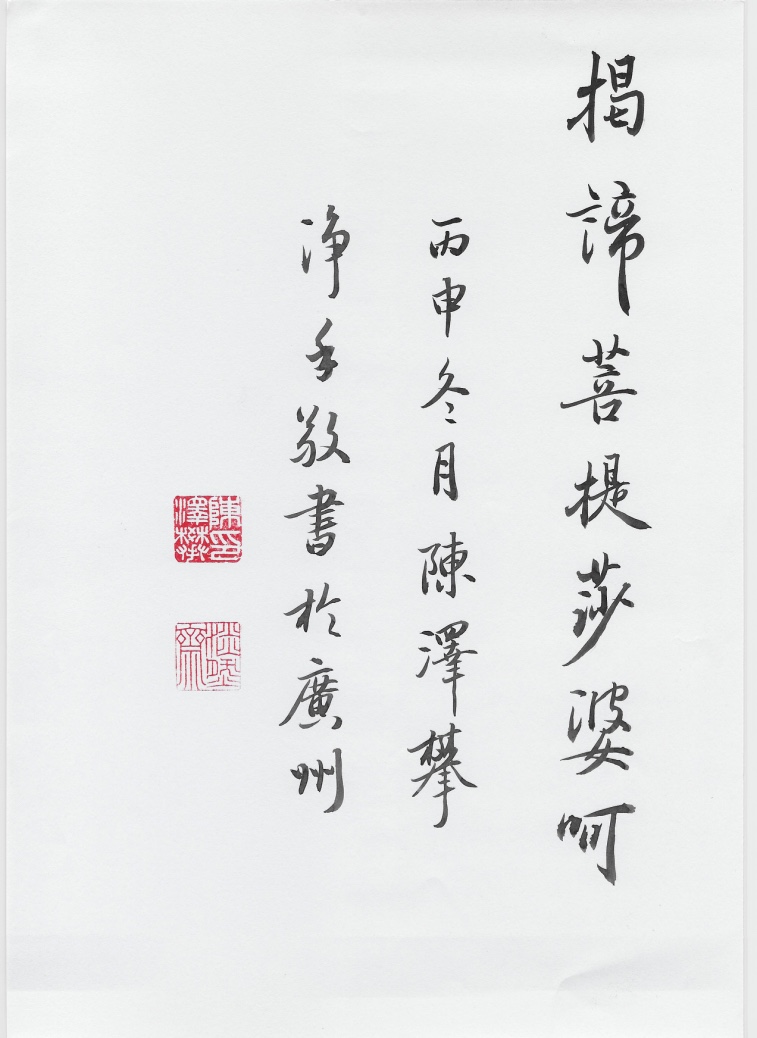 揭諦菩提莎婆呵
丙申冬月陳澤攀
淨手敬書於廣州
陳印澤攀